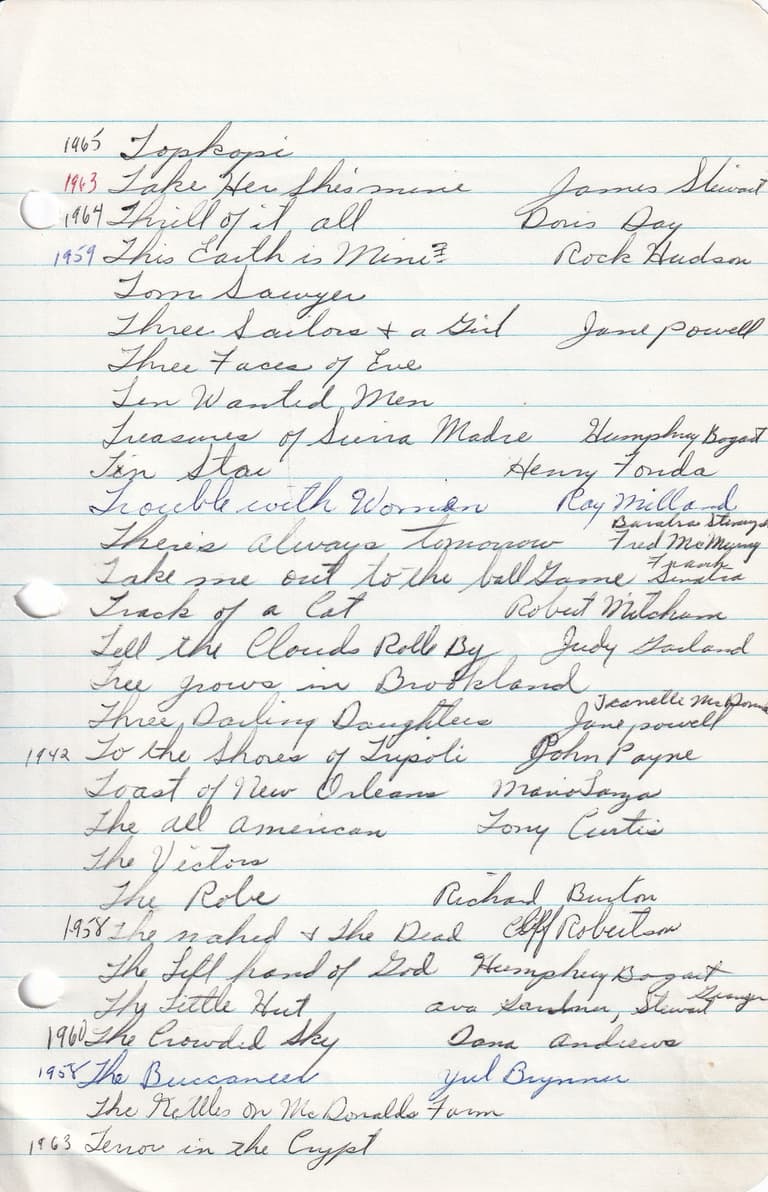 1965 Topkopi
1963 Take Her She's mine James Stewart
1964 Thrill of it all Doris Day
1959 This Earth is Mine Rock Hudson
Tom Sawyer
Three Sailors + a Girl Jane Powell
Three Faces of Eve
Ten Wanted Men
Treasures of Sierra Madre Humphrey Bogart
Tin Star Henry Fonda
Trouble with Women Ray Milland
There's always tomorrow Fred McMurray
Take me out to the ball Game Frank Sinatra
Track of a Cat Robert Mitchum
Tell the Clouds Rolle By Judy Garland
Tree grows in Brookland
Three Darling Daughters Jeanette McDonald Jane Powell
1942 To the Shores of Tripoli John Payne
Toast of New Orleans Mario Lanza
The all american Tony Curtis
The Victors
The Robe Richard Burton
1958 The naked + The Dead Cliff Robertson
The Left hand of God Humphrey Bogart
The Little Hut ava Gardner, Stewart Granger
1960 The Crowded Sky Dana andrews
1958 The Buccaneer Yul Brynner
The Kettles on McDonalds Farm
1963 Terror in the Crypt